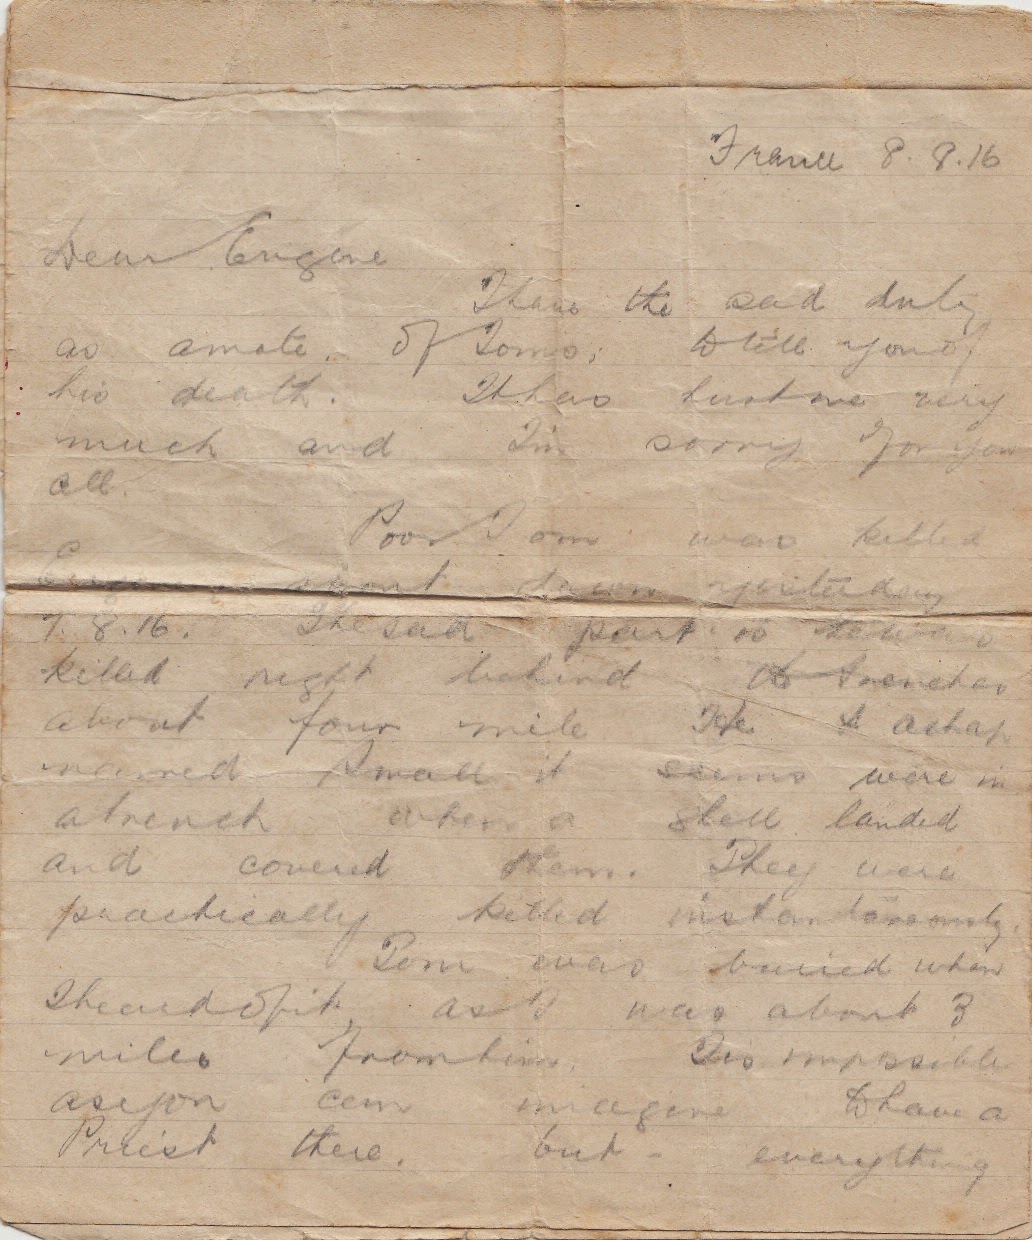 France 8.8.16
Dear Eugene
I have the sad duty
as a mate. of Toms, to tell you of
his death. It has hurt me very
much and I'm sorry for you
all.
Poor Tom was killed
Eugene about dawn yesterday
7.8.16. The sad part is he was
killed right behind the trenches
about four mile He & a chap
named Small it seems were in
a trench when a shell landed
and covered them. They were
practically killed instantaneously.
Tom was buried when
I heard of it, as I was about 3
miles from him. Tis impossible
as you can imagine to have a
Priest there. but - everything